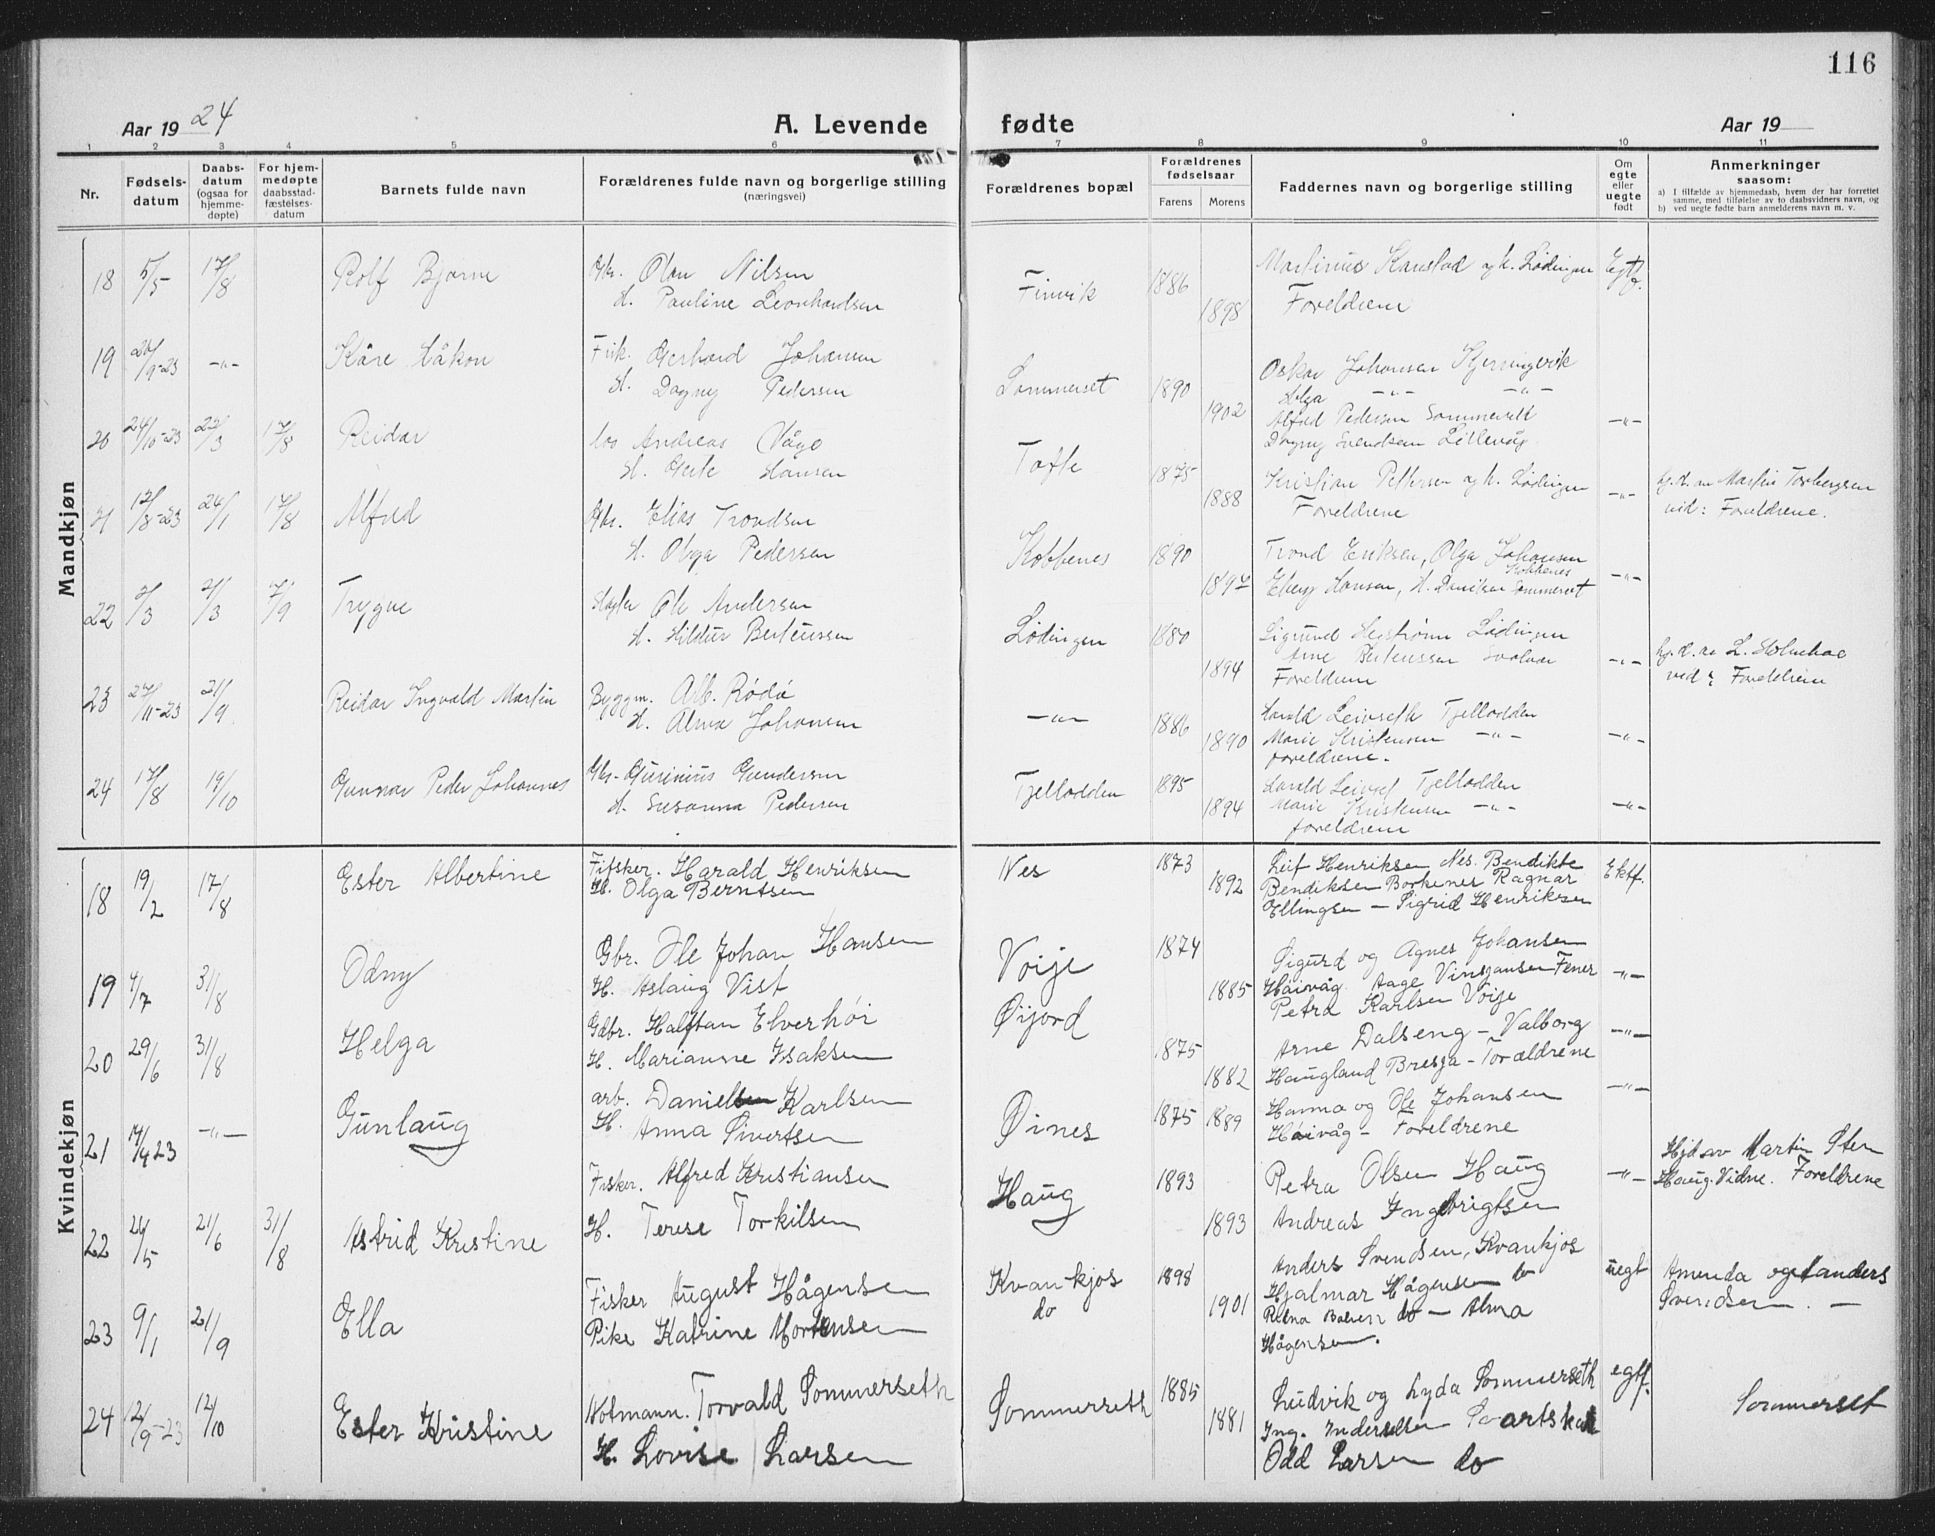 116
Aar 1924
A. Levende fødte
Aar 19
1 2 3 4 5 6 7 8 9 10 11
Nr.
Fødsels-
datum
Daabs-
datum
(ogsaa for
hjemme-
døpte)
For hjem-
medøpte
daabsstad-
fæstelses-
datum
Barnets fulde navn
Forældrenes fulde navn og borgerlige stilling
(næringsvei)
Forældrenes bopæl
Forældrenes
fødselsaar
Farens Morens
Faddernes navn og borgerlige stilling
Om
egte
eller
uegte
født
Anmerkninger
saasom:
a) I tilfælde av hjemmedaab, hvem der har forrettet
samme, med tilføielse av to daabsvidners navn, og
b) ved uegte fødte barn anmelderens navn m. v.
Mandkjøn
18 5/5 17/8 Rolf Bjarne
Gbr. Olav Nilsen
H. Pauline Leonhardsen
Finvik 1886 1898
Martinus Kanstad Lødingen
Foreldrene
Egtf.
19 /9-23 -"- Kåre Håkon
Fisk. Gerhard Johansen
H. Dagny Pedersen
Sommerset 1890 1902
Oskar Johansen Kjerringvik
Helga -"- -"-
Alfred Pedersen Sommerset
Dagny Svendsen Lillevåg
-"-
20 24/10-23 22/3 17/8 Reidar
Andreas Våge
H. Gerte Hansen
Tofte 1875 1888
Kristian Pettersen Lødingen
Foreldrene
-"-
hj.d. av Martin Torbergsen
vid: Foreldrene.
21 12/8-23 24/1 17/8 Alfred
Gbr. Elias Trondsen
H. Olga Pedersen
Kobbenes 1890 1897
Trond Eriksen, Olga Johansen
Kobbenes
Eberg Hansen, H. Danielsen Sommerset
-"-
22 2/3 2/3 7/9 Trygve
Ole Andersen
H. Hildur Berteussen
Lødingen 1880 1894
Sigrund Hegstrøm Lødingen
Arne Berteussen Svolvær
Foreldrene
-"-
hj.d. av L.
vid: Foreldrene
23 27/11-23 21/9 Reidar Ingvald Martin
Byggm. Alb. Rødø
H. Alma Johansen
-"- 1886 1890
Harald Leivseth Tjellodden
Marie Kristensen -"-
foreldrene.
-"-
24 17/8 19/10 Gunnar Peder Johannes
Gbr. Gurinius Gundersen
H. Susanna Pedersen
Tjellodden 1895 1894
Harald Leivset Tjellodden
Marie Kristensen -"-
foreldrene
-"-
Kvindekjøn
18 19/2 17/8 Ester Albertine
Fitsker. Harald Henriksen
H. Olga Berntsen
Nes 1873 1892
Leif Henriksen Nes. Bendikte
Bendiksen Borkenes Ragnar
Ellingsen - Sigrid Henriksen
Ektf.
19 4/7 31/8 Odny
Gbr. Ole Johan Hansen
H. Aslaug Vist
Voije 1874 1885
Sigurd og Agnes Johansen
Håivåg. Aage Vinsjansen Fener
Petra Karlsen Voije
-"-
20 29/6 31/8 Helga
Gdbr. Halftan Elverhöi
H. Marianne Isaksen
Øijord 1875 1882
Arne Dalseng - Valborg
Haugland Bresja - Forældrene
-"-
21 14/4 23 -"- Gunlaug
arb. Danielsen Karlsen
H. Anna Sivertsen
Øines 1875 1889
Hanna og Ole Johansen
Håivåg - Foreldrene
-"-
Hjd av Martin Sten
Haug. Vidne. Foreldrene
22 21/5 21/6 31/8 Astrid Kristine
Fisker. Alfred Kristiansen
H. Terese Torkilsen
Haug 1893 1893
Petra Olsen Haug
Andreas Ingebrigtsen
-"-
23 9/1 21/9 Ella
Fisker August Hågensen
Pike Katrine Mortensen
Kvankjos
do
1898 1901
Anders Svendsen, Kvankjos
Hjalmar Hågensen do
do - Alma
Hågensen.
uegt
Amenda og Anders
Svendsen. -
24 12/9-23 12/10 Ester Kristine
Notmann. Torvald Sommerseth
H. Lovise Larsen
Sommerseth 1885 1881
Ludvik og Lyda Sommerseth
Ing.
Odd Larsen do
egtf.
Sommerset